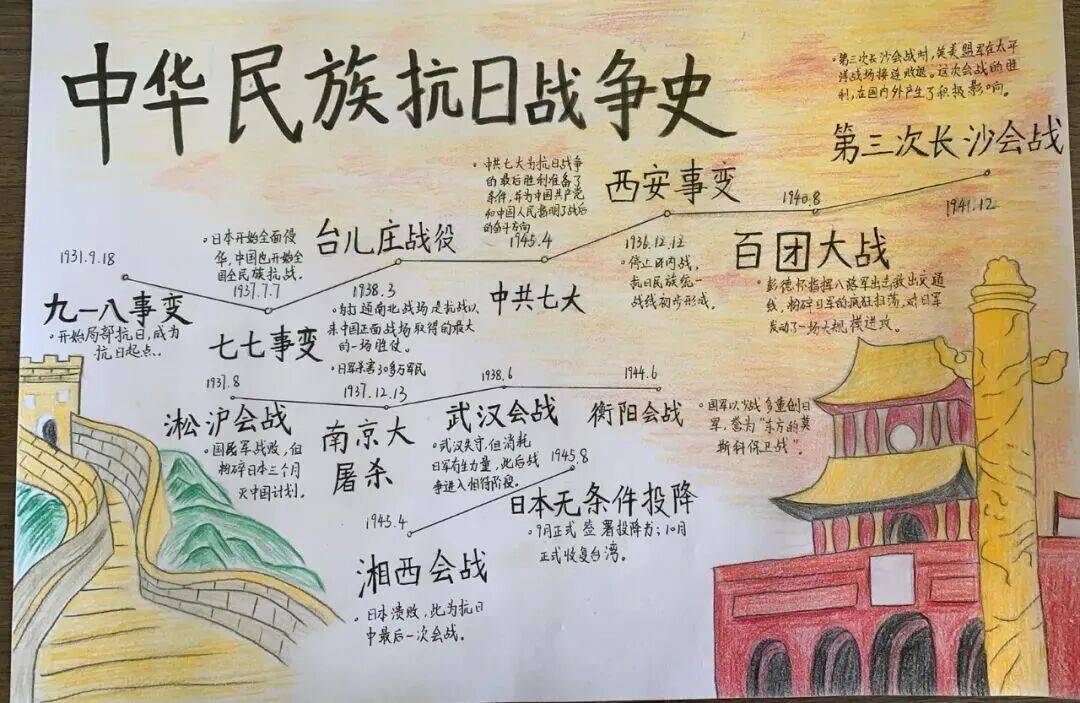 中华民族抗日战争史
第三次长沙会战时,英美盟军在太平
洋战场接连败退。这次会战的胜
利,在国内外产生了积极影响。
第三次长沙会战
1941.12
中共七大为抗日战争
的最后胜利准备了
条件,并为中国共产党
和中国人民指明了战后
的奋斗方向
1945.4
中共七大
西安事变
1936.12.12
停止国内战,
抗日民族统一
战线初步形成。
1940.8
百团大战
彭德怀指挥八路军出击敌出交通
线,粉碎日军的疯狂扫荡,对日军
发动了一场大规模进攻。
1931.9.18
九一八事变
开始局部抗日,成为
抗日起点..
日本开始全面侵
华,中国也开始全
国全民族抗战。
1937.7.7
七七事变
台儿庄战役
1938.3
打通南北战场是抗战以
来中国正面战场取得的最大
的一场胜仗。
日军杀害30多万军民
1937.8
淞沪会战
国民军战败,但
粉碎日本三个月
灭中国计划。
1937.12.13
南京大
屠杀
1938.6
武汉会战
武汉失守,但消耗
日军有生力量,此后战
争进入相持阶段。
1944.6
衡阳会战
国军以少战多重创日
军,誉为“东方的莫
斯科保卫战”
1945.4
湘西会战
日本溃败,此为抗日
中最后一次会战。
1945.8
日本无条件投降
9月正式签署投降书;10月
正式收复台湾。